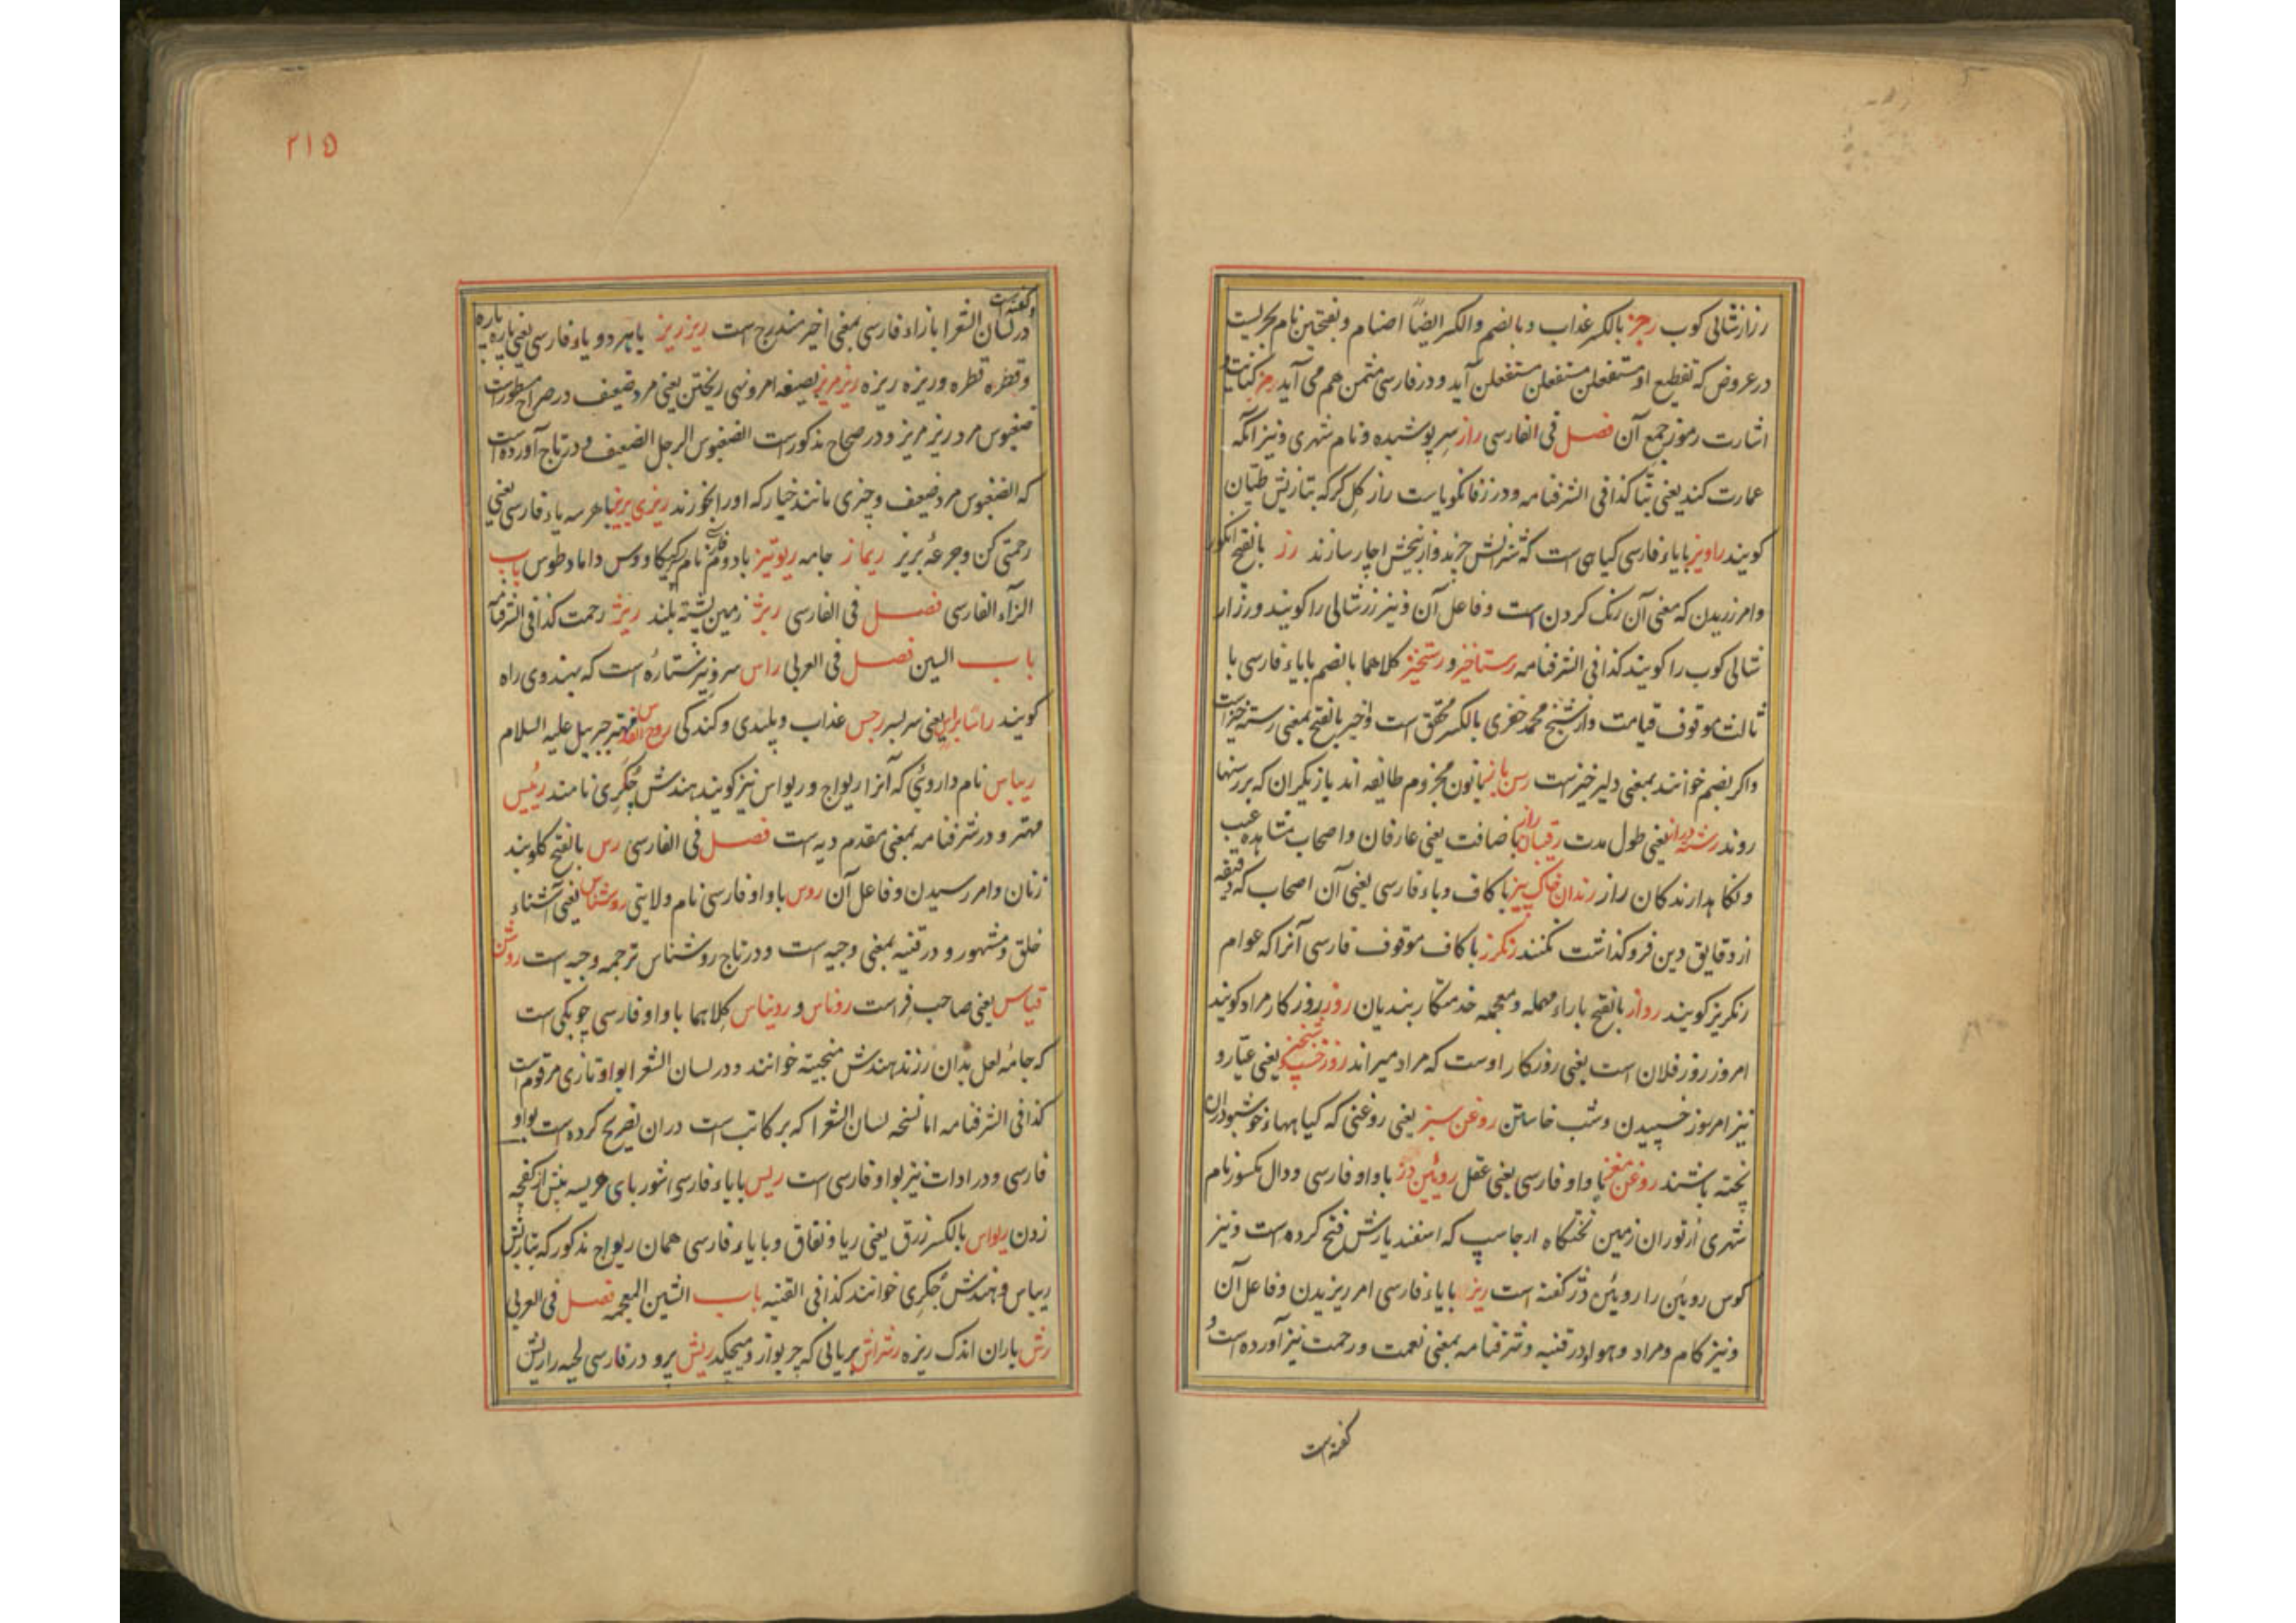 رزازشالی کوب رجز بالکسر عذاب و بالضم والکسر ایضاً اصنام و بفتحتین نام بحریست
در عروض که تقطیع او مستفعلن مستفعلن مستفعلن آید و در فارسی مثمن هم می آید رمز کنایت و
اشارت رموز جمع آن فصل فی الفارسی راز سر پوشیده و نام شهری و نیز آنکه
عمارت کند یعنی بنّا کذا فی الشرفنامه و در زفانکویاست راز کل کر که بتازیش طیّان
کویند راویز بایاء فارسی کیاهی است که شترانش چرند و از بیخش اچار سازند رز بالفتح انکور
وامر رزیدن که معنی آن رنک کردن است و فاعل آن و نیز رز شالی را کویند و رزاز
شالی کوب را کویند کذا فی الشرفنامه رستاخیز و رستخیز کلاهما بالضم بایاء فارسی با
ثالث موقوف قیامت و از شیخ محمد خضری بالکسر محقق است و اخیر بالفتح بمعنی رسته خیز است
واکر بضم خوانند بمعنی دلیر خیزست رسن باز بانون مجزوم طائفه اند بازیکران که بر رسنها
روند رشته دراز یعنی طول مدت رقیبان راز باضافت یعنی عارفان و اصحاب مشاهده غیب
و نکاهدارندکان راز رندان خاک بیز با کاف و باء فارسی یعنی آن اصحاب که دقیقه
از دقایق دین فروکذاشت نکنند رنکرز با کاف موقوف فارسی آنرا که عوام
رنکریز کویند رواز بالفتح باراء مهمله و معجمه خدمتکار بندیان روز روزکار مراد کویند
امروز روز فلان است یعنی روزکار اوست که مراد میراند روز خسپ شبخیز یعنی عیّار و
نیز امر بروز خسپیدن و شب خاستن روغن سبز یعنی روغنی که کیاهها خوشبو دران
پخته باشند روغن مغز باواو فارسی یعنی عقل روئین دز باواو فارسی و دال مکسور نام
شهری از توران زمین تختکاه ارجاسپ که اسفندیارش فتح کرده است و نیز
کوس روئین را روئین دز کفته است ریز بایاء فارسی امر ریزیدن و فاعل آن
و نیز کام و مراد و هوا و در قنیه و شرفنامه بمعنی نعمت و رحمت نیز آورده است و
کفته است
۲۱۵
کفته است
در لسان الشعرا بازاء فارسی بمعنی اخیر مندرج است ریز ریز باهر دو یاء فارسی یعنی پاره پاره
و قطره قطره و ریزه ریزه ریز مریز بصیغه امر و نهی ریختن یعنی مرد ضعیف در صراح مسطورست
ضغبوس مرد ریز مریز و در صحاح مذکورست الضغبوس الرجل الضعیف و در تاج آورده است
که الضغبوس مرد ضعیف و چیزی مانند خیار که اورا بخورند ریزی بریز باهر سه یاء فارسی یعنی
رحمتی کن و جرعهٔ بریز ریماز جامه ریونیز بادوم فارسی نام پسر کیکاووس داماد طوس باب
الزاء الفارسی فصل فی الفارسی ریژ زمین پشته بلند ریژ رحمت کذا فی الشرفنامه
باب السین فصل فی العربی راس سر و نیز ستارهٔ است که بهندوی راه
کویند راسا براس یعنی سربسر رجس عذاب و پلیدی و کندکی روح القدس مهتر جبریل علیه السلام
ریباس نام داروئی که آنرا ریواج و ریواس نیز کویند هندش چُکَری نامند رئیس
مهتر و در شرفنامه بمعنی مقدم دیه است فصل فی الفارسی رس بالفتح کلوبند
زنان وامر رسیدن و فاعل آن روس باواو فارسی نام ولایتی روشناس یعنی آشناء
خلق و مشهور و در قنیه بمعنی وجیه است و در تاج روشناس ترجمه وجیه است روشن
قیاس یعنی صاحب فراست روناس و رویناس کلاهما باواو فارسی چوبکی است
که جامهٔ لعل بدان رزند هندش منجیته خوانند و در لسان الشعرا بواو تازی مرقومست
کذا فی الشرفنامه اما نسخه لسان الشعرا که بر کاتب است دران تصریح کرده است بواو
فارسی و در ادات نیز بواو فارسی است ریس بایاء فارسی شوربای هریسه پیش از کفچه
زدن ریواس بالکسر زرق یعنی ریا و نفاق و بایاء فارسی همان ریواج مذکور که بتازیش
ریباس و هندش چُکَری خوانند کذا فی القنیه باب الشین المعجمه فصل فی العربی
رش باران اندک ریزه رشراش بریانی که چربو از و میچکد ریش پرو در فارسی لحیه را ریش